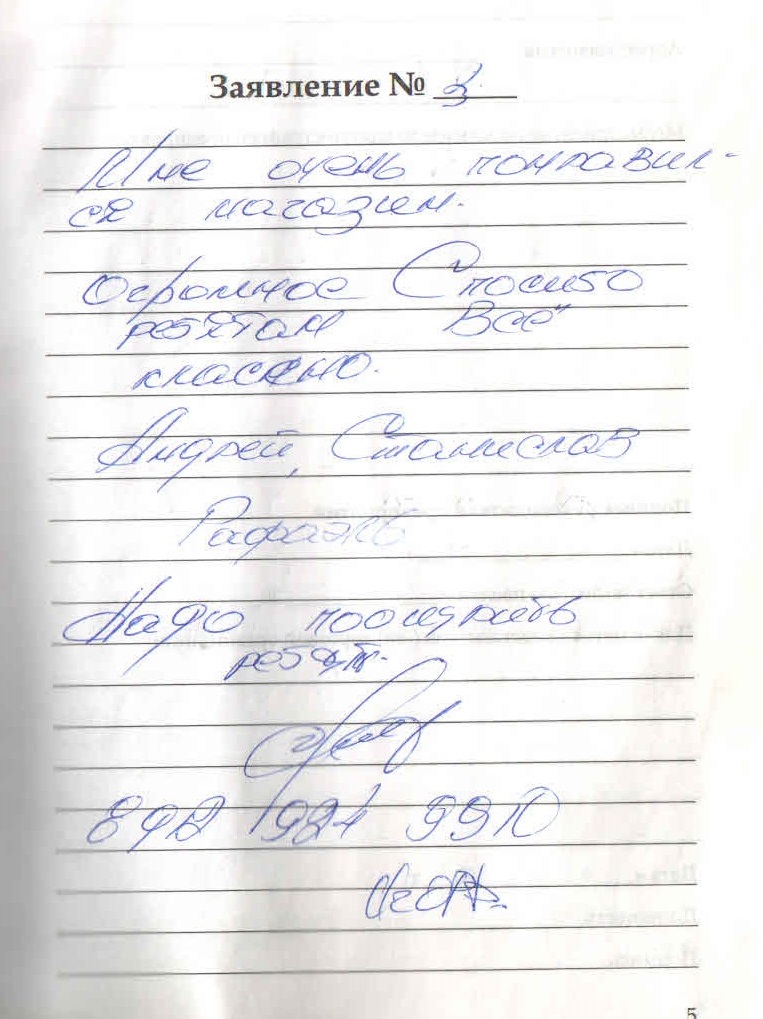 Заявление № 3
Мне очень понравил-
ся магазин.
Огромное Спасибо
ребятам Всё
классно.
Андрей, Станислав
Рафаэль
Надо поощрить
ребят.
5